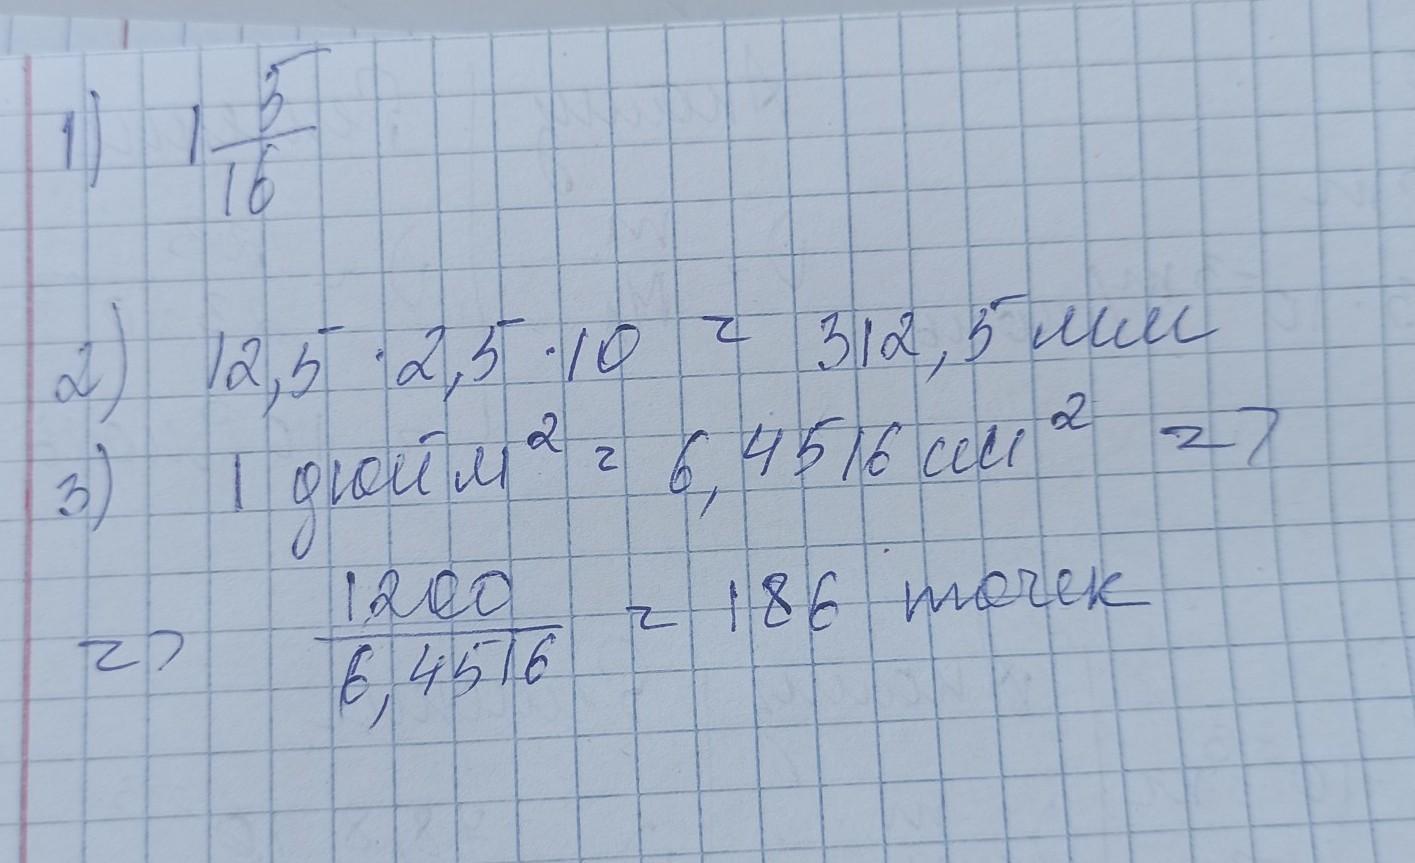 1) 1 5/16
2) 12,5 · 2,5 · 10 = 312,5 мм
3) 1 дюйм² = 6,4516 см² =>
=> 1200/6,4516 = 186 точек